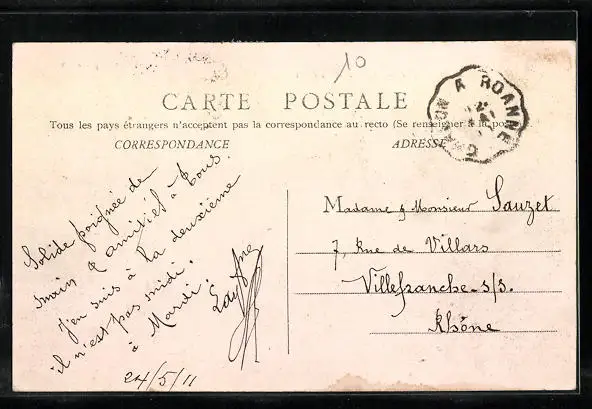 10
CARTE POSTALE
Tous les pays étrangers n'acceptent pas la correspondance au recto (Se renseigner à la poste)
CORRESPONDANCE
ADRESSE
A ROANNE
Solide poignée de
main & amitiés à tous.
J'en suis à la deuxième
il n'est pas midi.
à Mardi.
24/5/11
Madame & Monsieur Sauzet
7, Rue de Villars
Villefranche-s/s.
Rhône